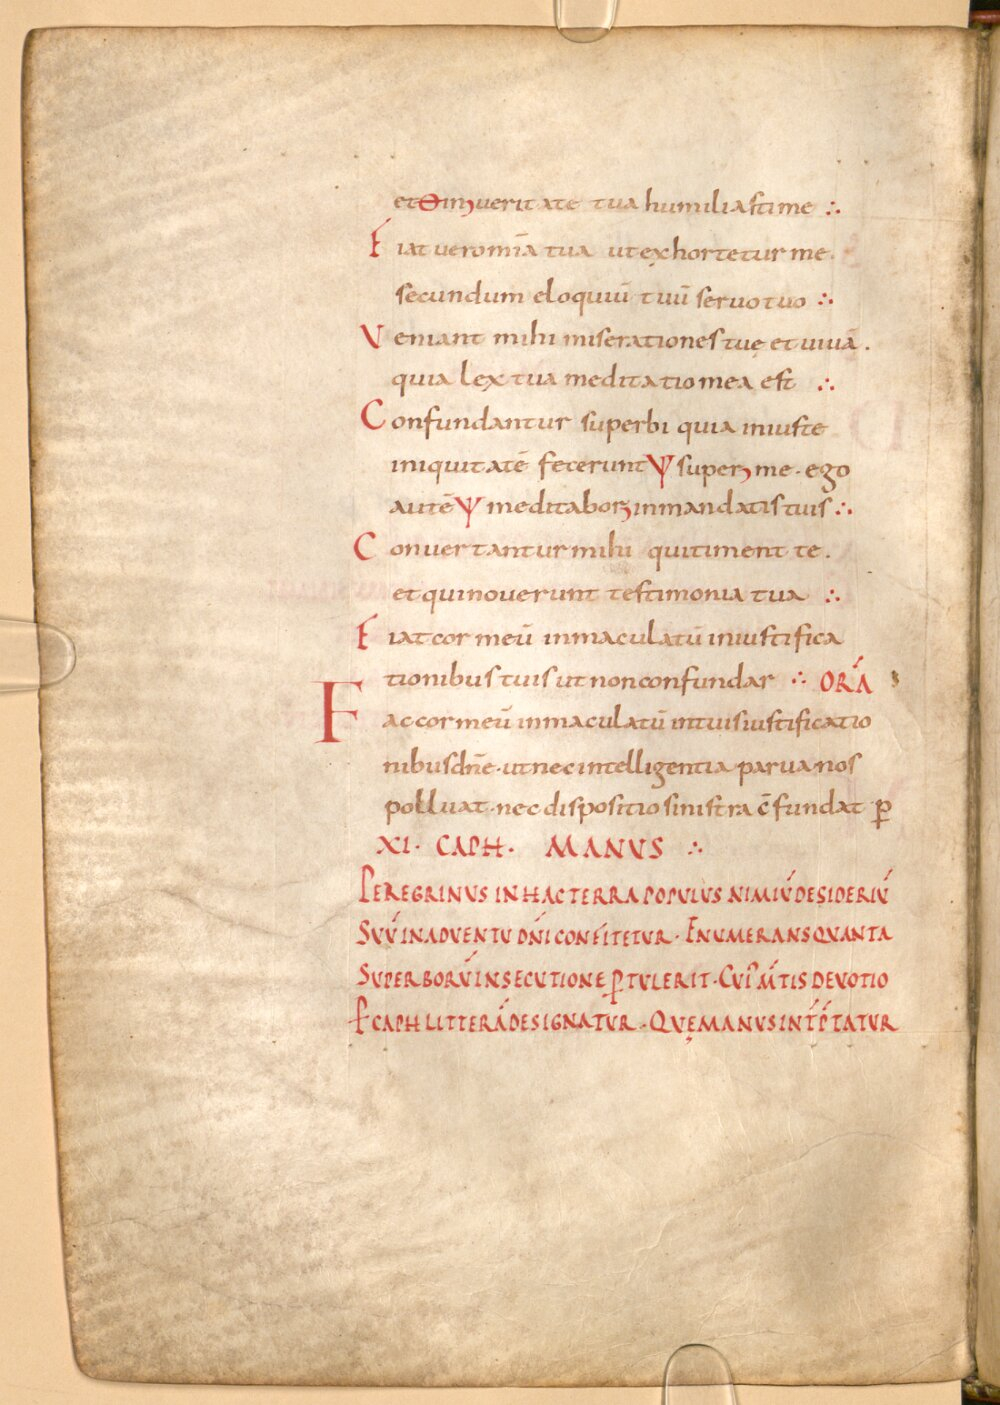 et Θ inꝫ ueritate tua humiliasti me ∴
Fiat uero mīa tua ut exhortetur me.
secundum eloquiū tuū seruo tuo ∴
Veniant mihi miserationes tuę et uiuā.
quia lex tua meditatio mea est ∴
Confundantur superbi quia iniuste
iniquitatē fecerunt ψ superꝫ me · ego
autē ψ meditaborꝫ in mandatis tuis ∴
Conuertantur mihi qui timent te.
et qui nouerunt testimonia tua ∴
Fiat cor meū inmaculatū in iustifica
tionibus tuis ut non confundar ∴ ORĀ
Fac cor meū inmaculatū in tuis iustificatio
nibus dn̄e · ut nec intelligentia parua nos
polluat · nec dispositio sinistra c̄fundat ꝑ
XI · CAPH · MANUS ∴
PEREGRINUS IN HAC TERRA POPULUS NIMIŪ DESIDERIŪ
SUŪ IN ADUENTU DN̄I CONFITETUR · ENUMERANS QUANTA
SUPERBORŪ INSECUTIONE ꝑTULERIT · CUI᷒ M̄TIS DEUOTIO
P̶ CAPH LITTERĀ DESIGNATUR · QUĘ MANUS INT̄P̄TATUR